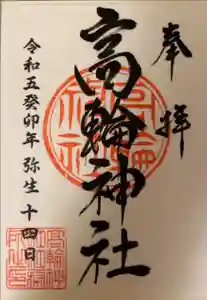 奉拝
高輪神社
令和五癸卯年 弥生 十四日